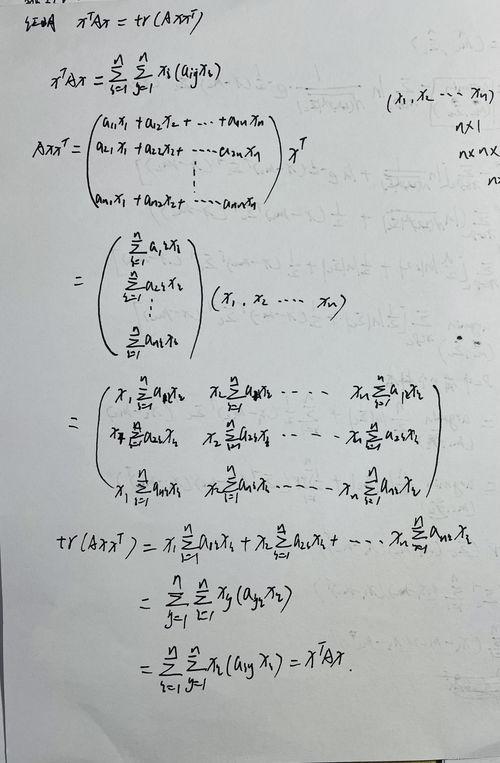 证明 xᵀAx = tr(Axxᵀ)
xᵀAx = Σ_{i=1}^{n} Σ_{j=1}^{n} x_i(a_{ij}x_j)
(x₁, x₂ ⋯ x_n)
n×1
n×n×
Axxᵀ = ( a₁₁x₁ + a₁₂x₂ + ⋯ + a₁ₙxₙ
a₂₁x₁ + a₂₂x₂ + ⋯ a₂ₙxₙ
⋮
aₙ₁x₁ + aₙ₂x₂ + ⋯ aₙₙxₙ ) xᵀ
= ( Σ_{i=1}^{n} a_{1i}x_i
Σ_{i=1}^{n} a_{2i}x_i
⋮
Σ_{i=1}^{n} a_{ni}x_i ) (x₁, x₂ ⋯ xₙ)
= ( x₁ Σ_{i=1}^{n} a_{1i}x_i x₂ Σ_{i=1}^{n} a_{1i}x_i ⋯ xₙ Σ_{i=1}^{n} a_{1i}x_i
x₁ Σ_{i=1}^{n} a_{2i}x_i x₂ Σ_{i=1}^{n} a_{2i}x_i ⋯ xₙ Σ_{i=1}^{n} a_{2i}x_i
x₁ Σ_{i=1}^{n} a_{ni}x_i x₂ Σ_{i=1}^{n} a_{ni}x_i ⋯ xₙ Σ_{i=1}^{n} a_{ni}x_i )
tr(Axxᵀ) = x₁ Σ_{i=1}^{n} a_{1i}x_i + x₂ Σ_{i=1}^{n} a_{2i}x_i + ⋯ xₙ Σ_{i=1}^{n} a_{ni}x_i
= Σ_{j=1}^{n} Σ_{i=1}^{n} x_j(a_{ji}x_i)
= Σ_{i=1}^{n} Σ_{j=1}^{n} x_i(a_{ij}x_j) = xᵀAx.